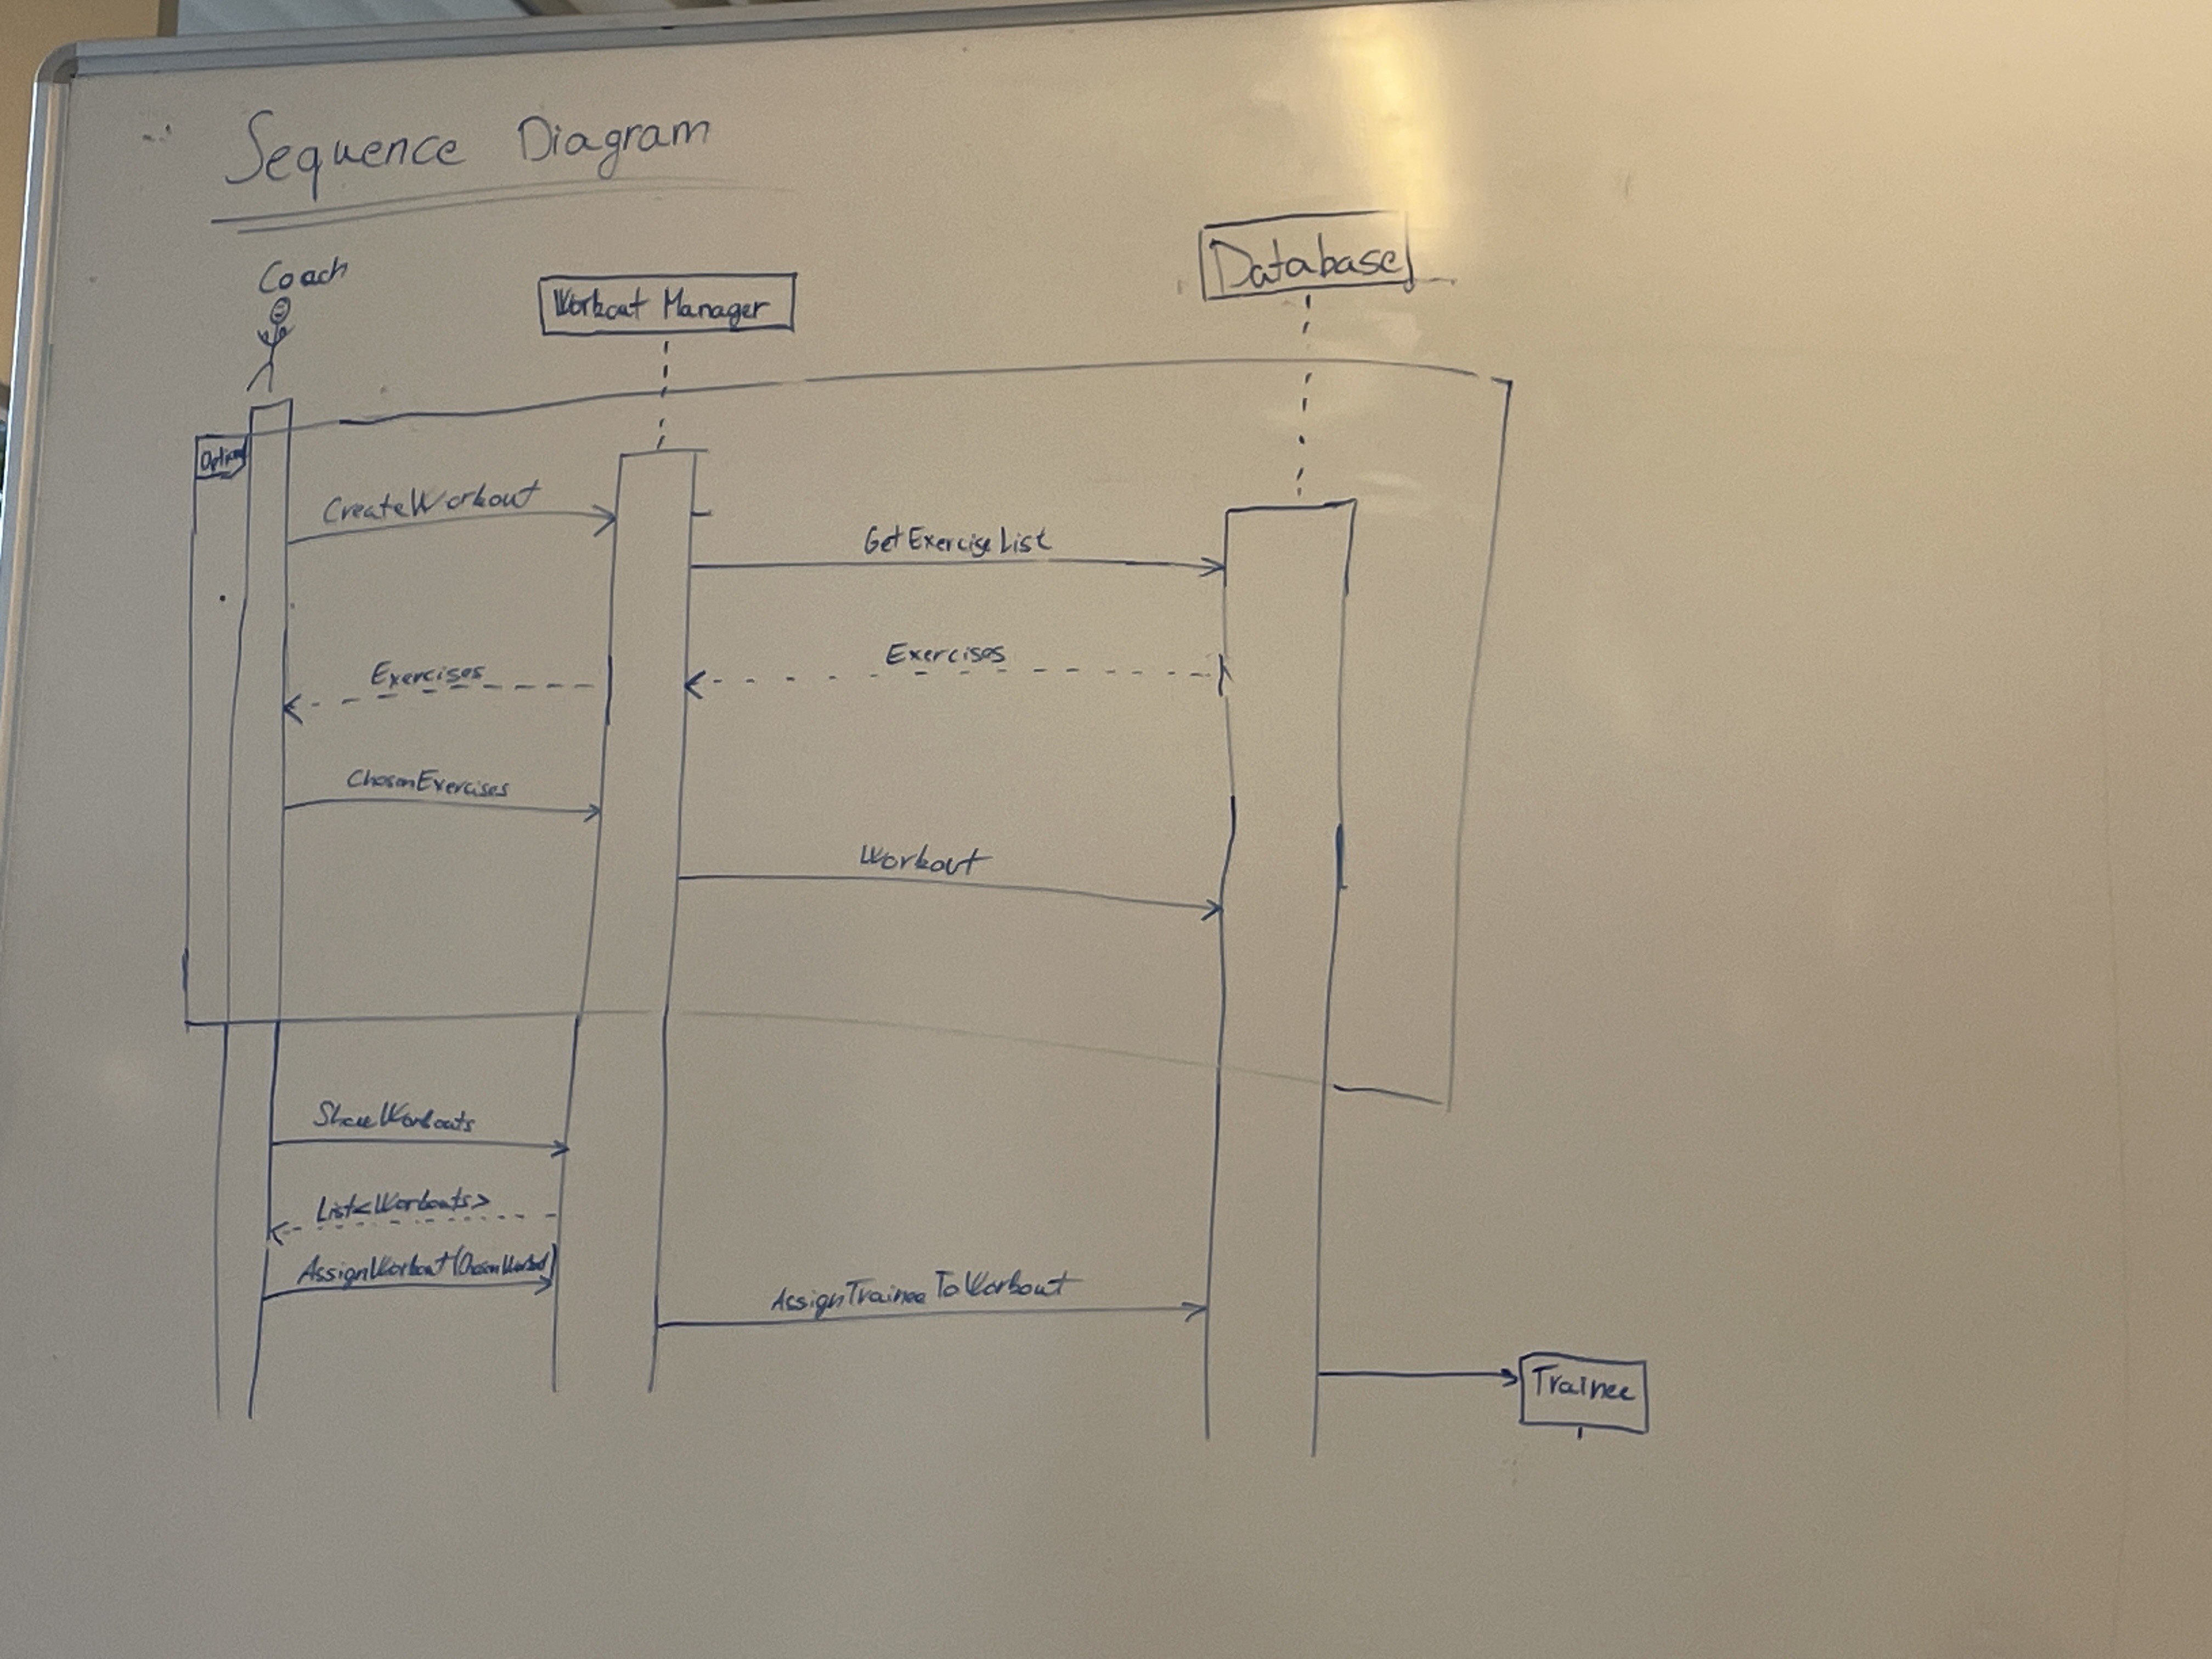 Sequence Diagram
Coach
Workout Manager
Database
Option
CreateWorkout
GetExerciseList
Exercises
Exercises
ChosenExercises
Workout
List<Workouts>
AssignWorkout(ChosenWorkout)
AssignTraineeToWorkout
Trainee